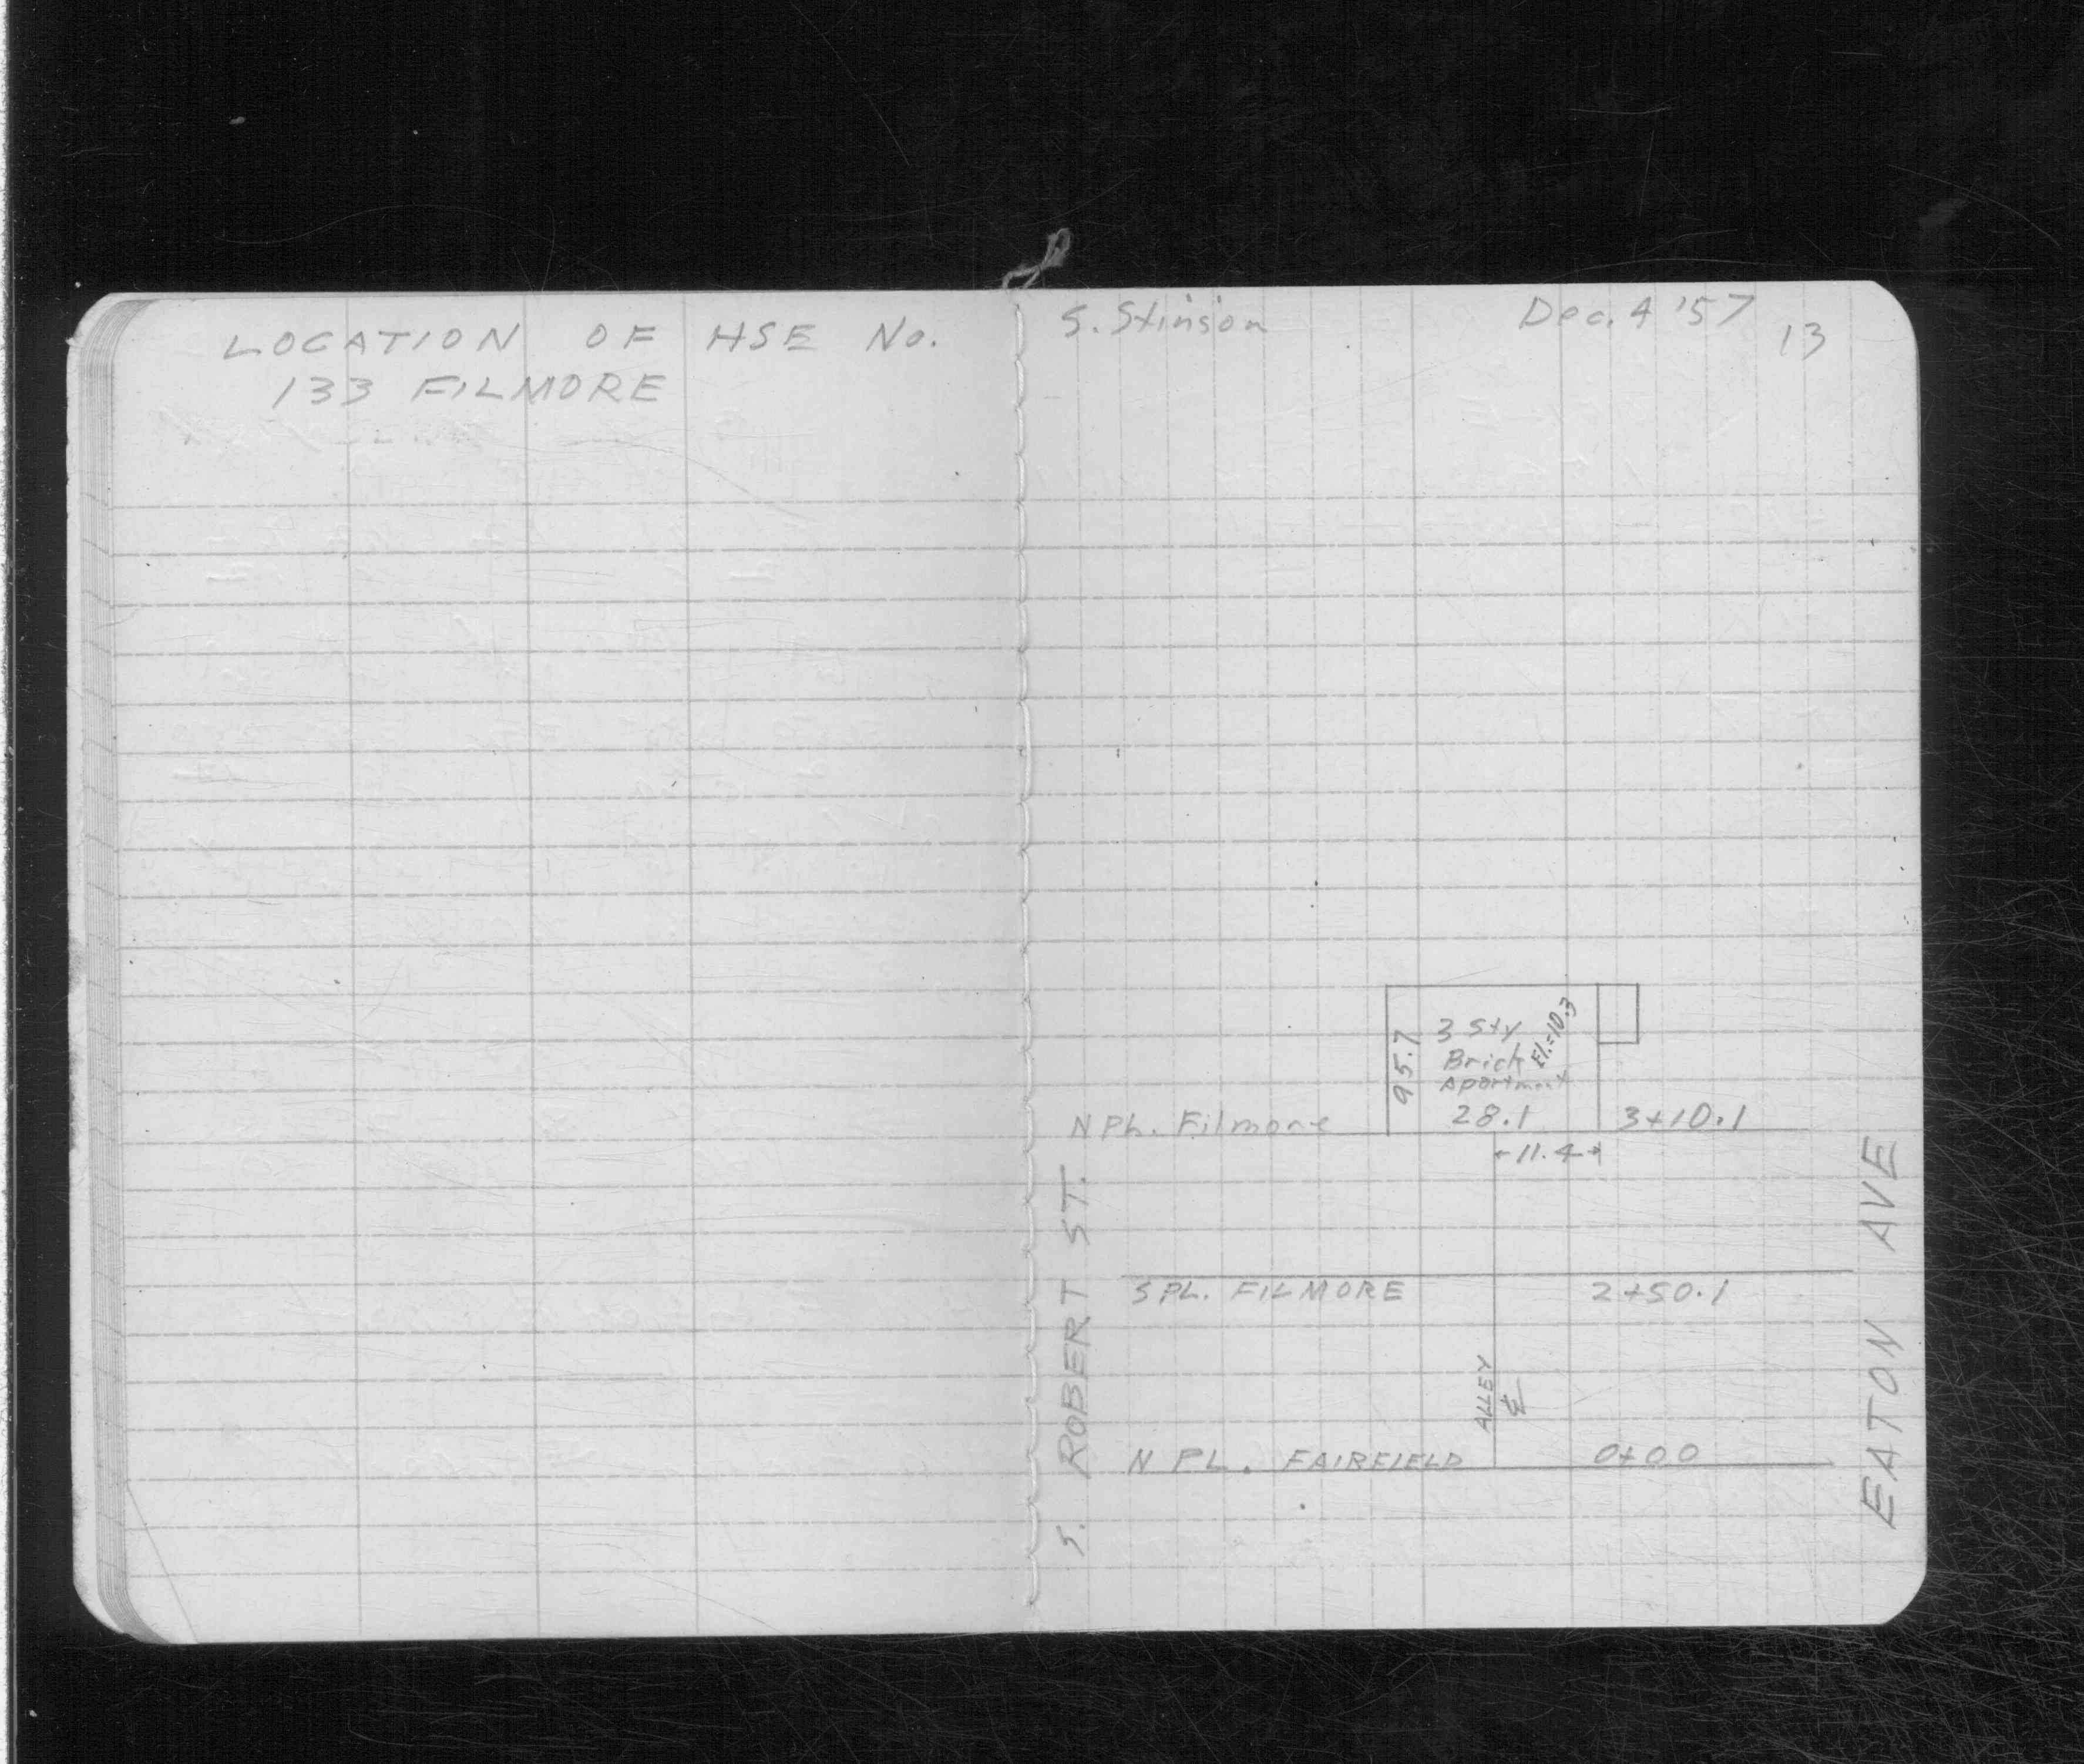 LOCATION OF HSE No.
133 FILMORE
S. Stinson
Dec. 4 '57
13
95.7
3 Sty
Brick
Apartment
El.=10.3
28.1
N PL. Filmore
3+10.1
11.4
S PL. FILMORE
2+50.1
ALLEY
℄
N PL. FAIRFIELD
0+00
S. ROBERT ST.
EATON AVE